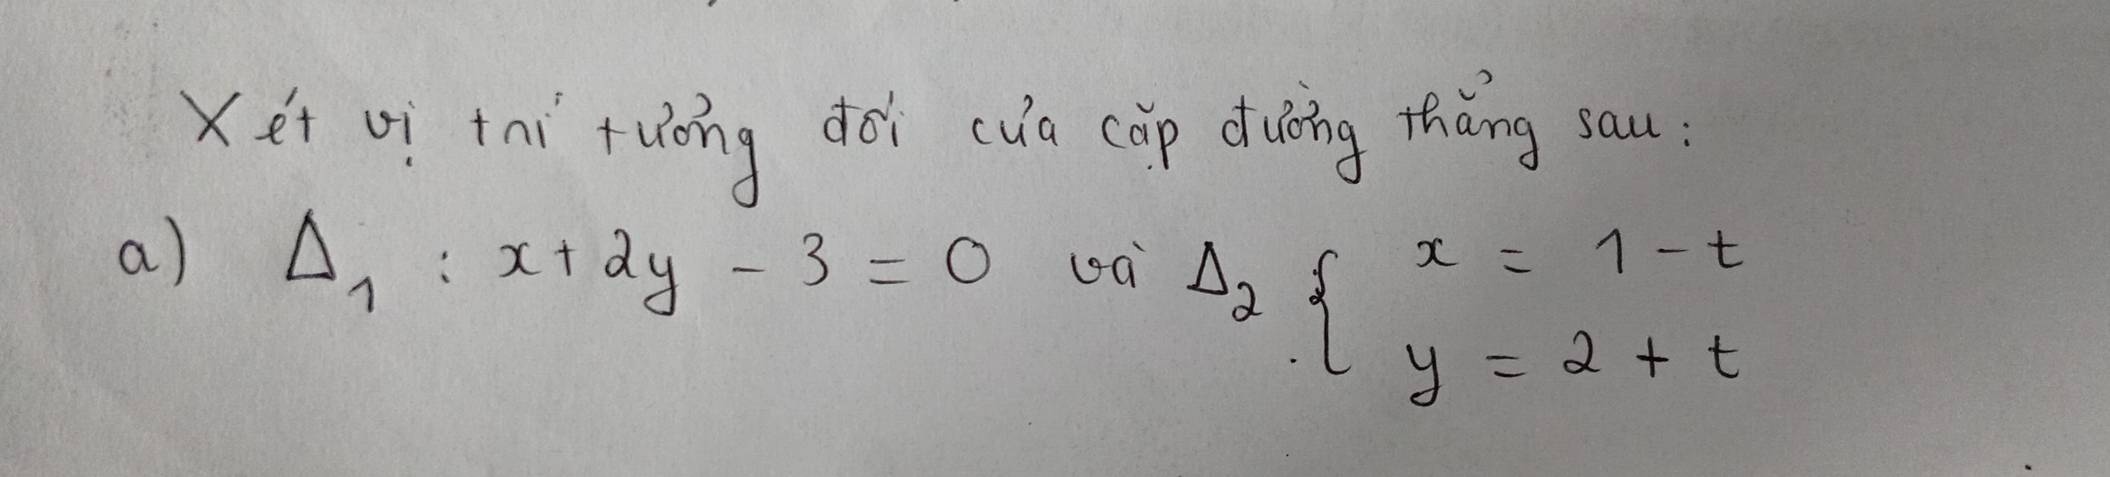 Xét vị trí tưởng đối của cặp đường thẳng sau:
a) Δ₁ : x + 2y - 3 = 0 và Δ₂ { x = 1 - t
y = 2 + t